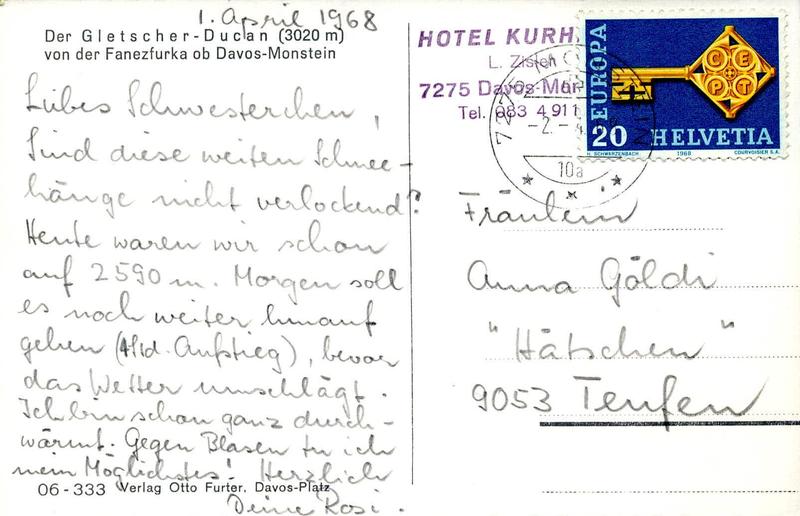 1. April 1968
Der Gletscher-Ducan (3020 m)
von der Fanezfurka ob Davos-Monstein
Liebes Schwesterchen,
Sind diese weiten Schnee-
hänge nicht verlockend?
Heute waren wir schon
auf 2590 m. Morgen soll
es noch weiter hinauf
gehen (4 Std. Aufstieg), bevor
das Wetter umschlägt.
Ich bin schon ganz durch-
wärmt. Gegen Blasen tu ich
mein Möglichstes! Herzlich
Deine Rosi.
06-333 Verlag Otto Furter, Davos-Platz
HOTEL KURH
L. Zisler
7275 Davos-Mon
Tel. 083 4 911
10a
EUROPA
CEPT
20 HELVETIA
H. SCHWARZENBACH 1968 COURVOISIER S.A.
Fräulein
Anna Göldi
"Hätschen"
9053 Teufen